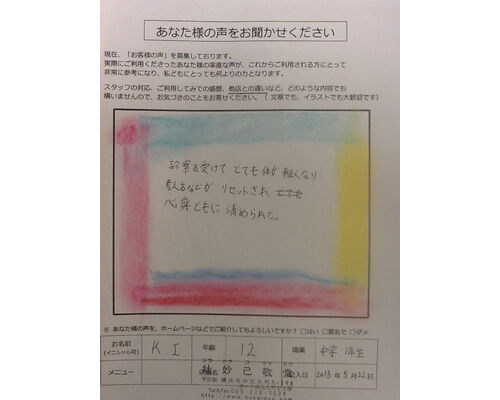 あなた様の声をお聞かせください
現在、「お客様の声」を募集しております。
実際にご利用くださったあなた様の率直な声が、これからご利用される方にとって
非常に参考になり、私どもにとっても何よりの力となります。
スタッフの対応、ご利用してみての感想、他店との違いなど、どのような内容でも
構いませんので、お気づきのことをお寄せください。( 文章でも、イラストでも大歓迎です)
診察を受けて とても体が 軽くなり
考え方などが リセットされ とても
心身ともに 清められた。
※ あなた様の声を、ホームページなどでご紹介してもよろしいですか? □はい □匿名で □ダメ
お名前 K. I 年齢 12 職業 中学 1年生
(イニシャル可)
メニュー 妙己敬堂 記入日 2013年5月22日